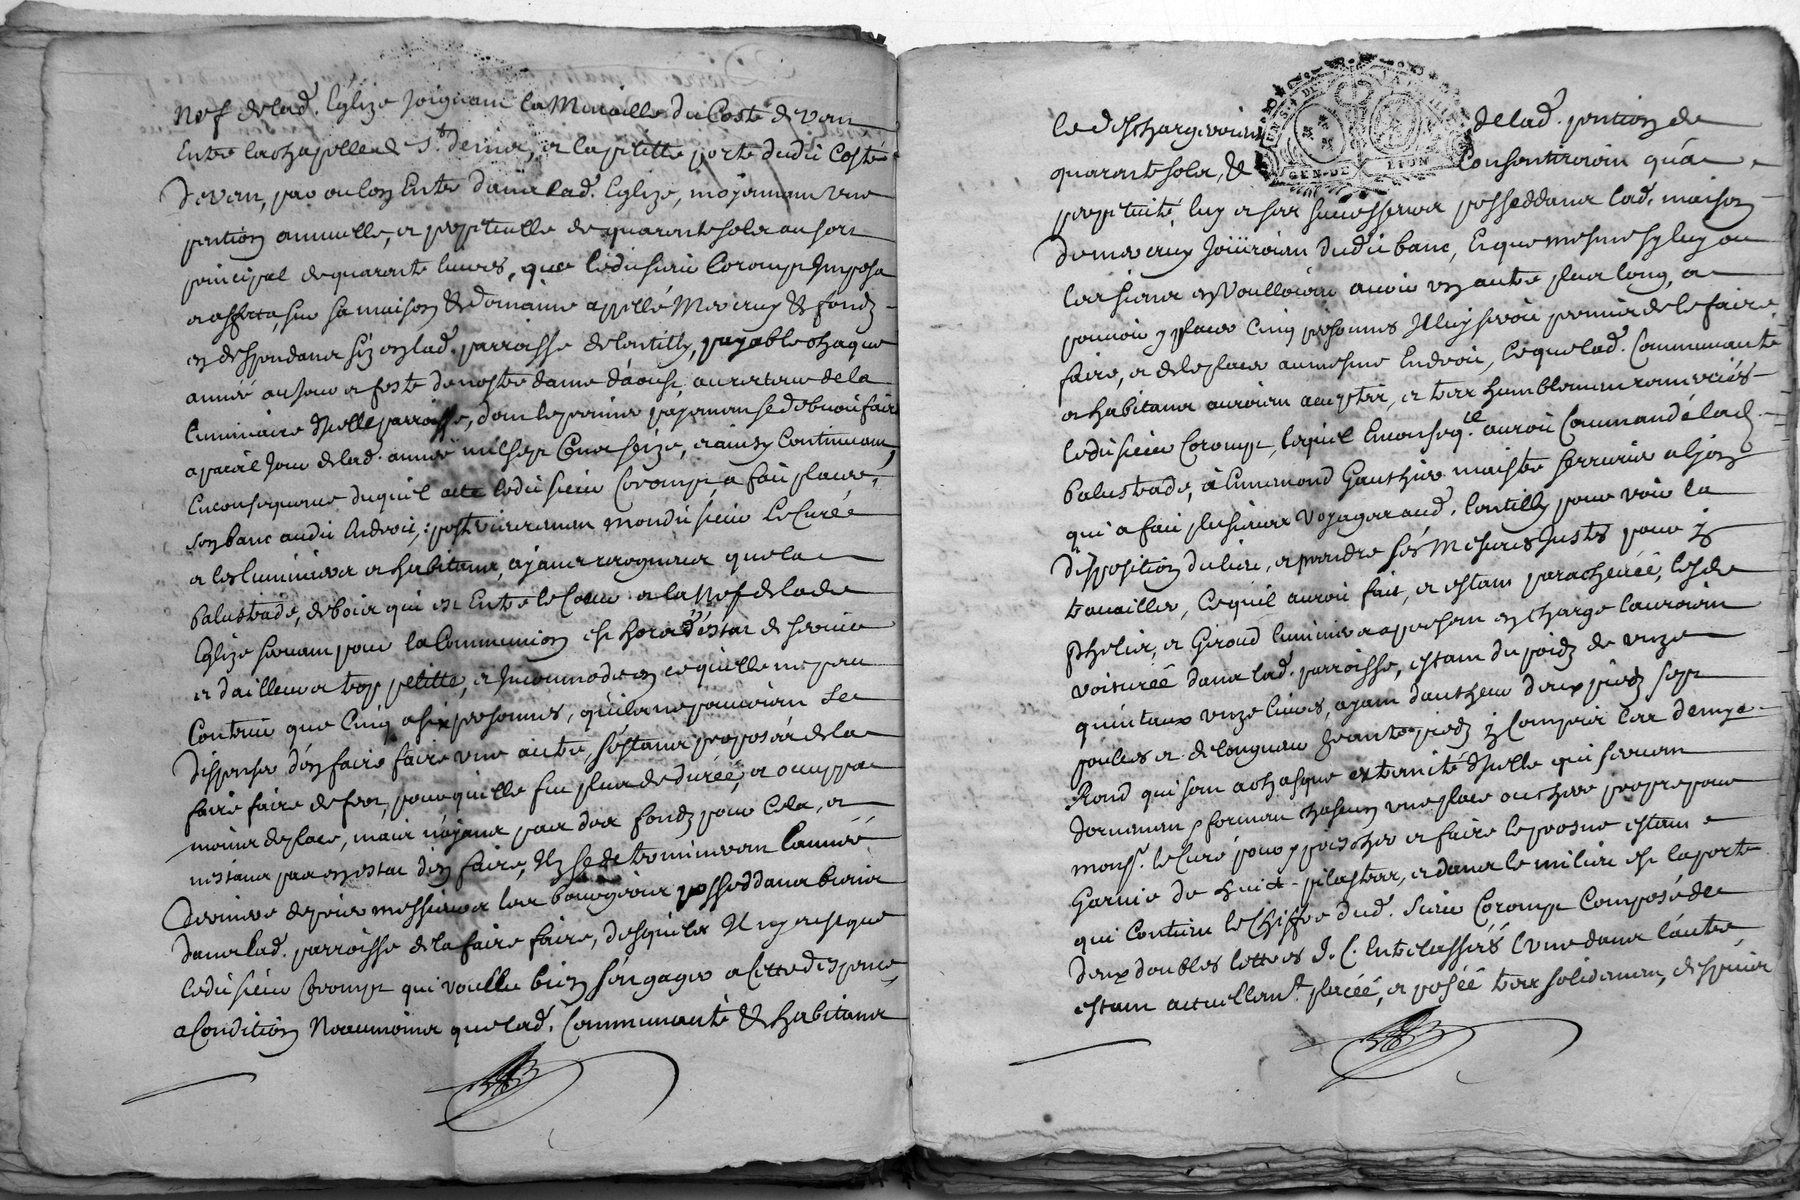 Nef de lad. Eglize joignant la Muraille du Costé de vent
Entre la chapelle de St. denis, et la petitte porte dudit Costé
de vent, par ou lon Entre dans lad. Eglize, moyennant une
pention annuelle, et perpetuelle de quarante solz au sort
principal de quarante livres, que ledit sieur Coromp Imposa
et affecta, sur sa maison & domaine appellé Mercruy & fondz
en deppendans sizes en lad. parroisse de lentilly, payable chaque
année au jour et feste de nostre dame d'aoust, au recteur de la
luminaire d'icelle parroisse, dont le premier payement se debvoit faire
a pareil jour de lad. année mil sept Cent seize, et ainsy Continuant,
En consequence duquel acte ledit sieur Coromp, a fait placer
son banc audit Endroit; posterieurement mondit sieur Le Curé
et les luminiers et habitans, ayants recogneus que la
balustrade, de bois qui est Entre le Coeur et la Nef de lade
Eglize servant pour la Communion est hors d'éstat de service
et d'ailleurs trop petitte, et Incommode en ce quelle ne peut
Contenir que Cinq a six personnes, qu'ils ne pouvoient se
dispenser d'en faire faire une autre, s'éstants proposés de la
faire faire de fer, pour quelle fut plus de durée, et occuppa
moins de place, mais n'ayants pas des fondz pour Cela, et
n'estants pas en estat d'en faire, Ilz se determinerent l'année
derniere de prier messieurs les bourgeois posseddans biens
dans lad. parroisse de la faire faire, desquels Il n'y eust que
ledit sieur Coromp qui voullu bien s'engager a Cette dispence,
a Condition Neaumoins que lad. Communauté & habitans
le deschargeroient de lad. pention de
quarante solz, & Consentiroient qu'a
perpetuité luy et ses successeurs posseddans lad. maison
de mercruy Joüiroient dudit banc, Et que mesme sy luy ou
les siens en Voulloient avoir un autre plus long, et
pouvoir y placer Cinq personnes Il luy seroit permis de le faire
faire, et de le placer au mesme Endroit, Ce que lad. Communauté
et habitans auroient accepter, et tres humblement remerciés
ledit sieur Coromp, lequel En conseq.ce auroit Commandé lad.
balustrade, à Ennemond Gauthier maistre serrurier a lyon
qui a fait plusieurs Voyages aud. lentilly pour voir la
disposition du lieu, et prendre ses Mesures Justes pour y
travailler, Ce qu'il auroit fait, et estant parachevéé, lesds
phelix, et Giroud luminiers a present en charge l'auroient
voituréé dans lad. parroisse, estant du poidz de unze
quintaux unze livres, ayant d'autheur deux piedz sept
poulces et de longueur trante piedz y Compris les demy
Rond qui sont a chasque extremité d'icelle qui servent
d'ornement et forment chascun une place ou chere propre pour
mons.r le Curé pour y prescher et faire le prosne estant
Garnie de huict pilastres, et dans le milieu est la porte
qui Contient le Chiffre dud. Sieur Coromp Composé de
deux doubles lettres J. C. Entrelassées l'une dans l'autre,
estant actuellem.t placéé, et poséé tres solidement, depuis
GEN. DE LYON